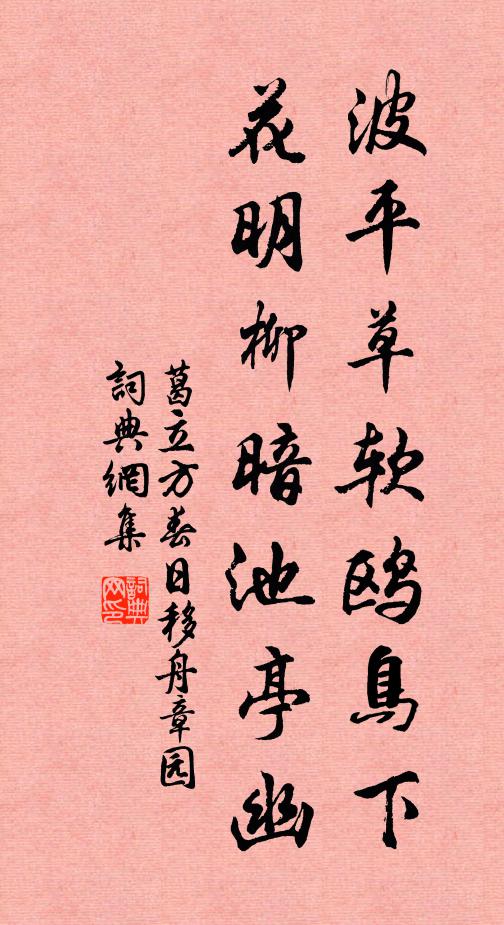 波平草软鸥鳬下
花明柳暗池亭幽
葛立方春日移舟章园
詞典網集
詞典
网印